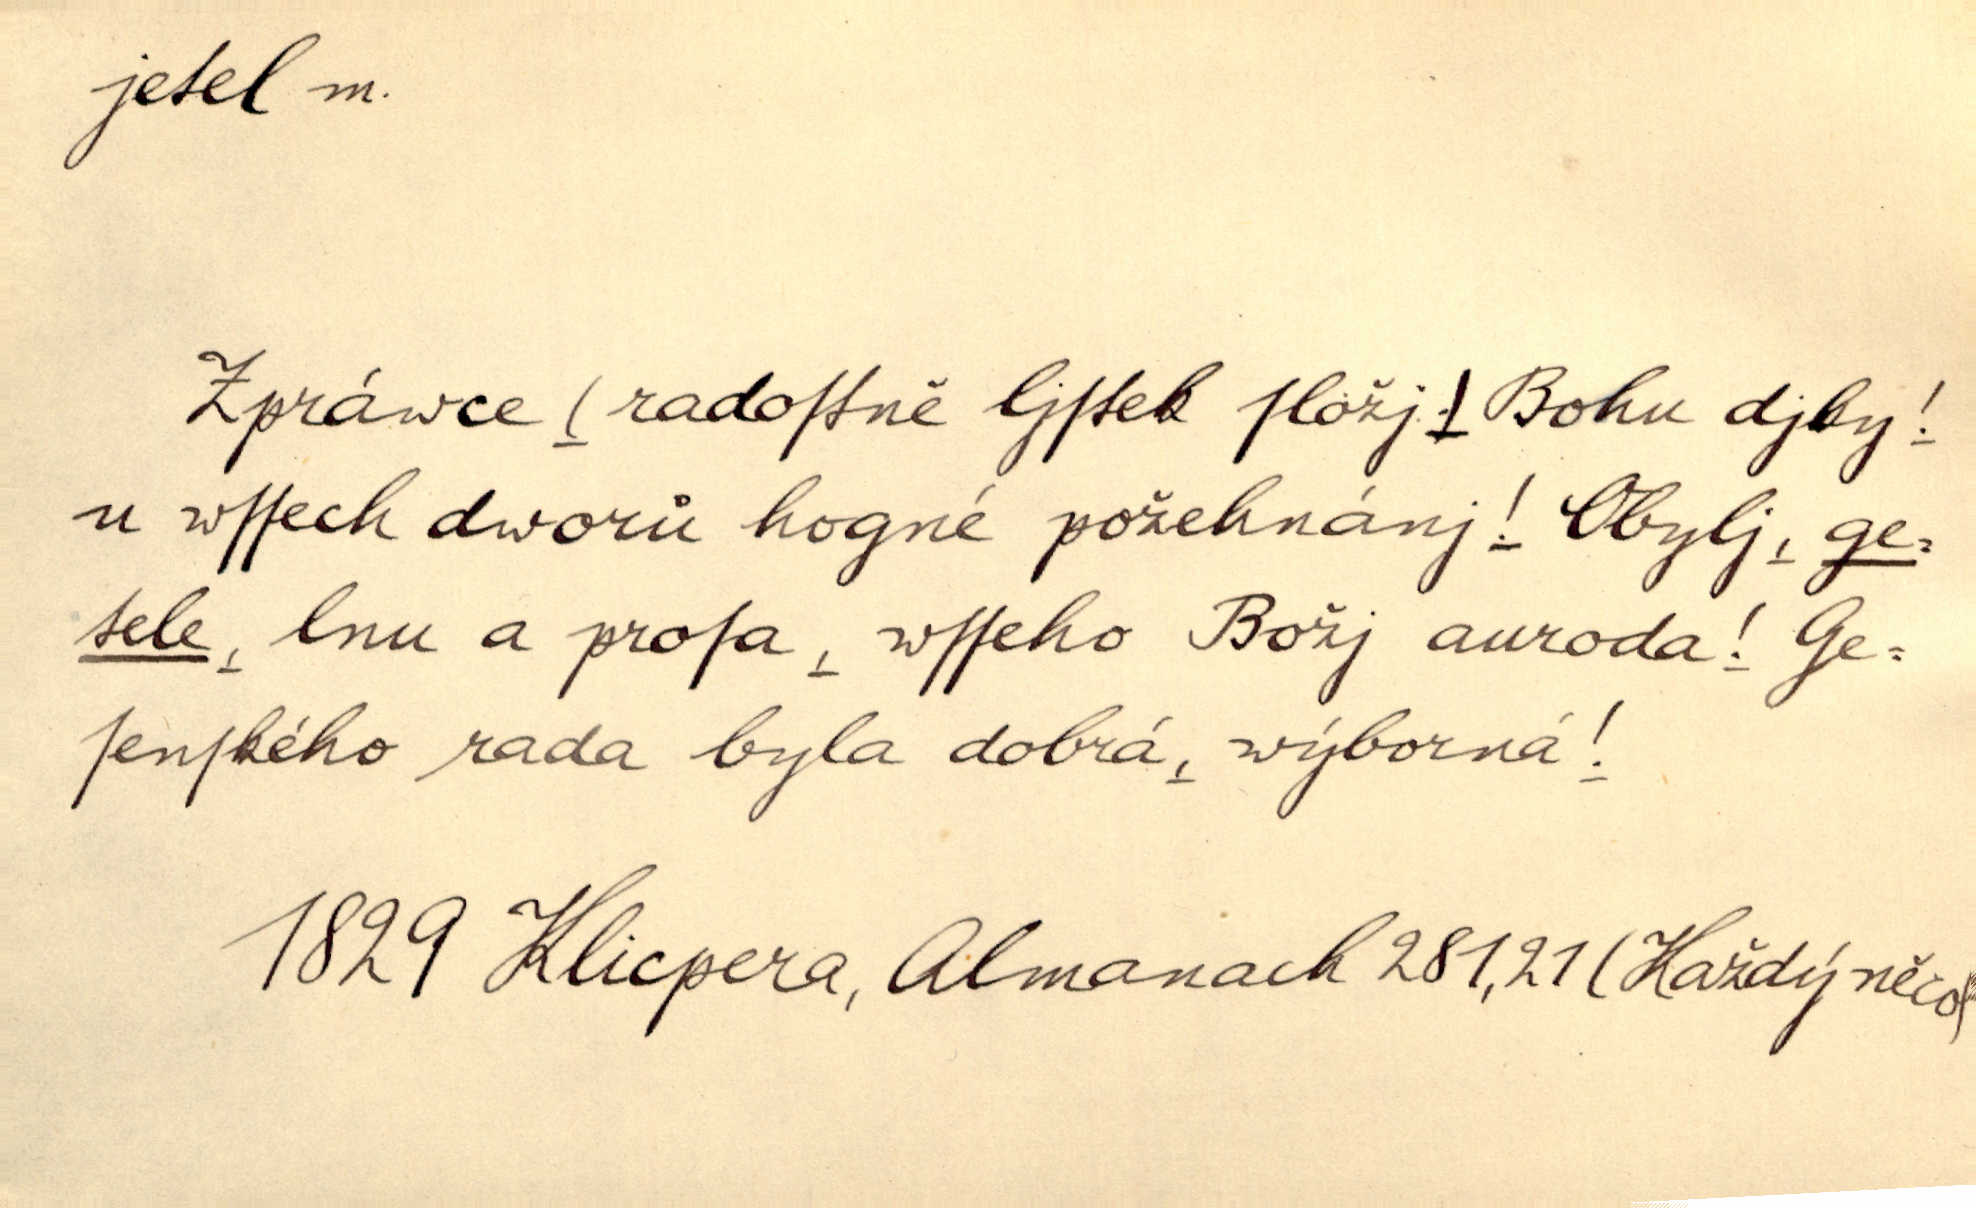 jetel m.
Zpráwce (radoſtně ljſtek ſložj:) Bohu djky!
u wſſech dworů hogné požehnánj! Obylj, ge-
tele, lnu a proſa, wſſeho Božj auroda! Ge-
ſenſkého rada byla dobrá, wýborná!
1829 Klicpera, Almanach 281,21 (Každý něco)